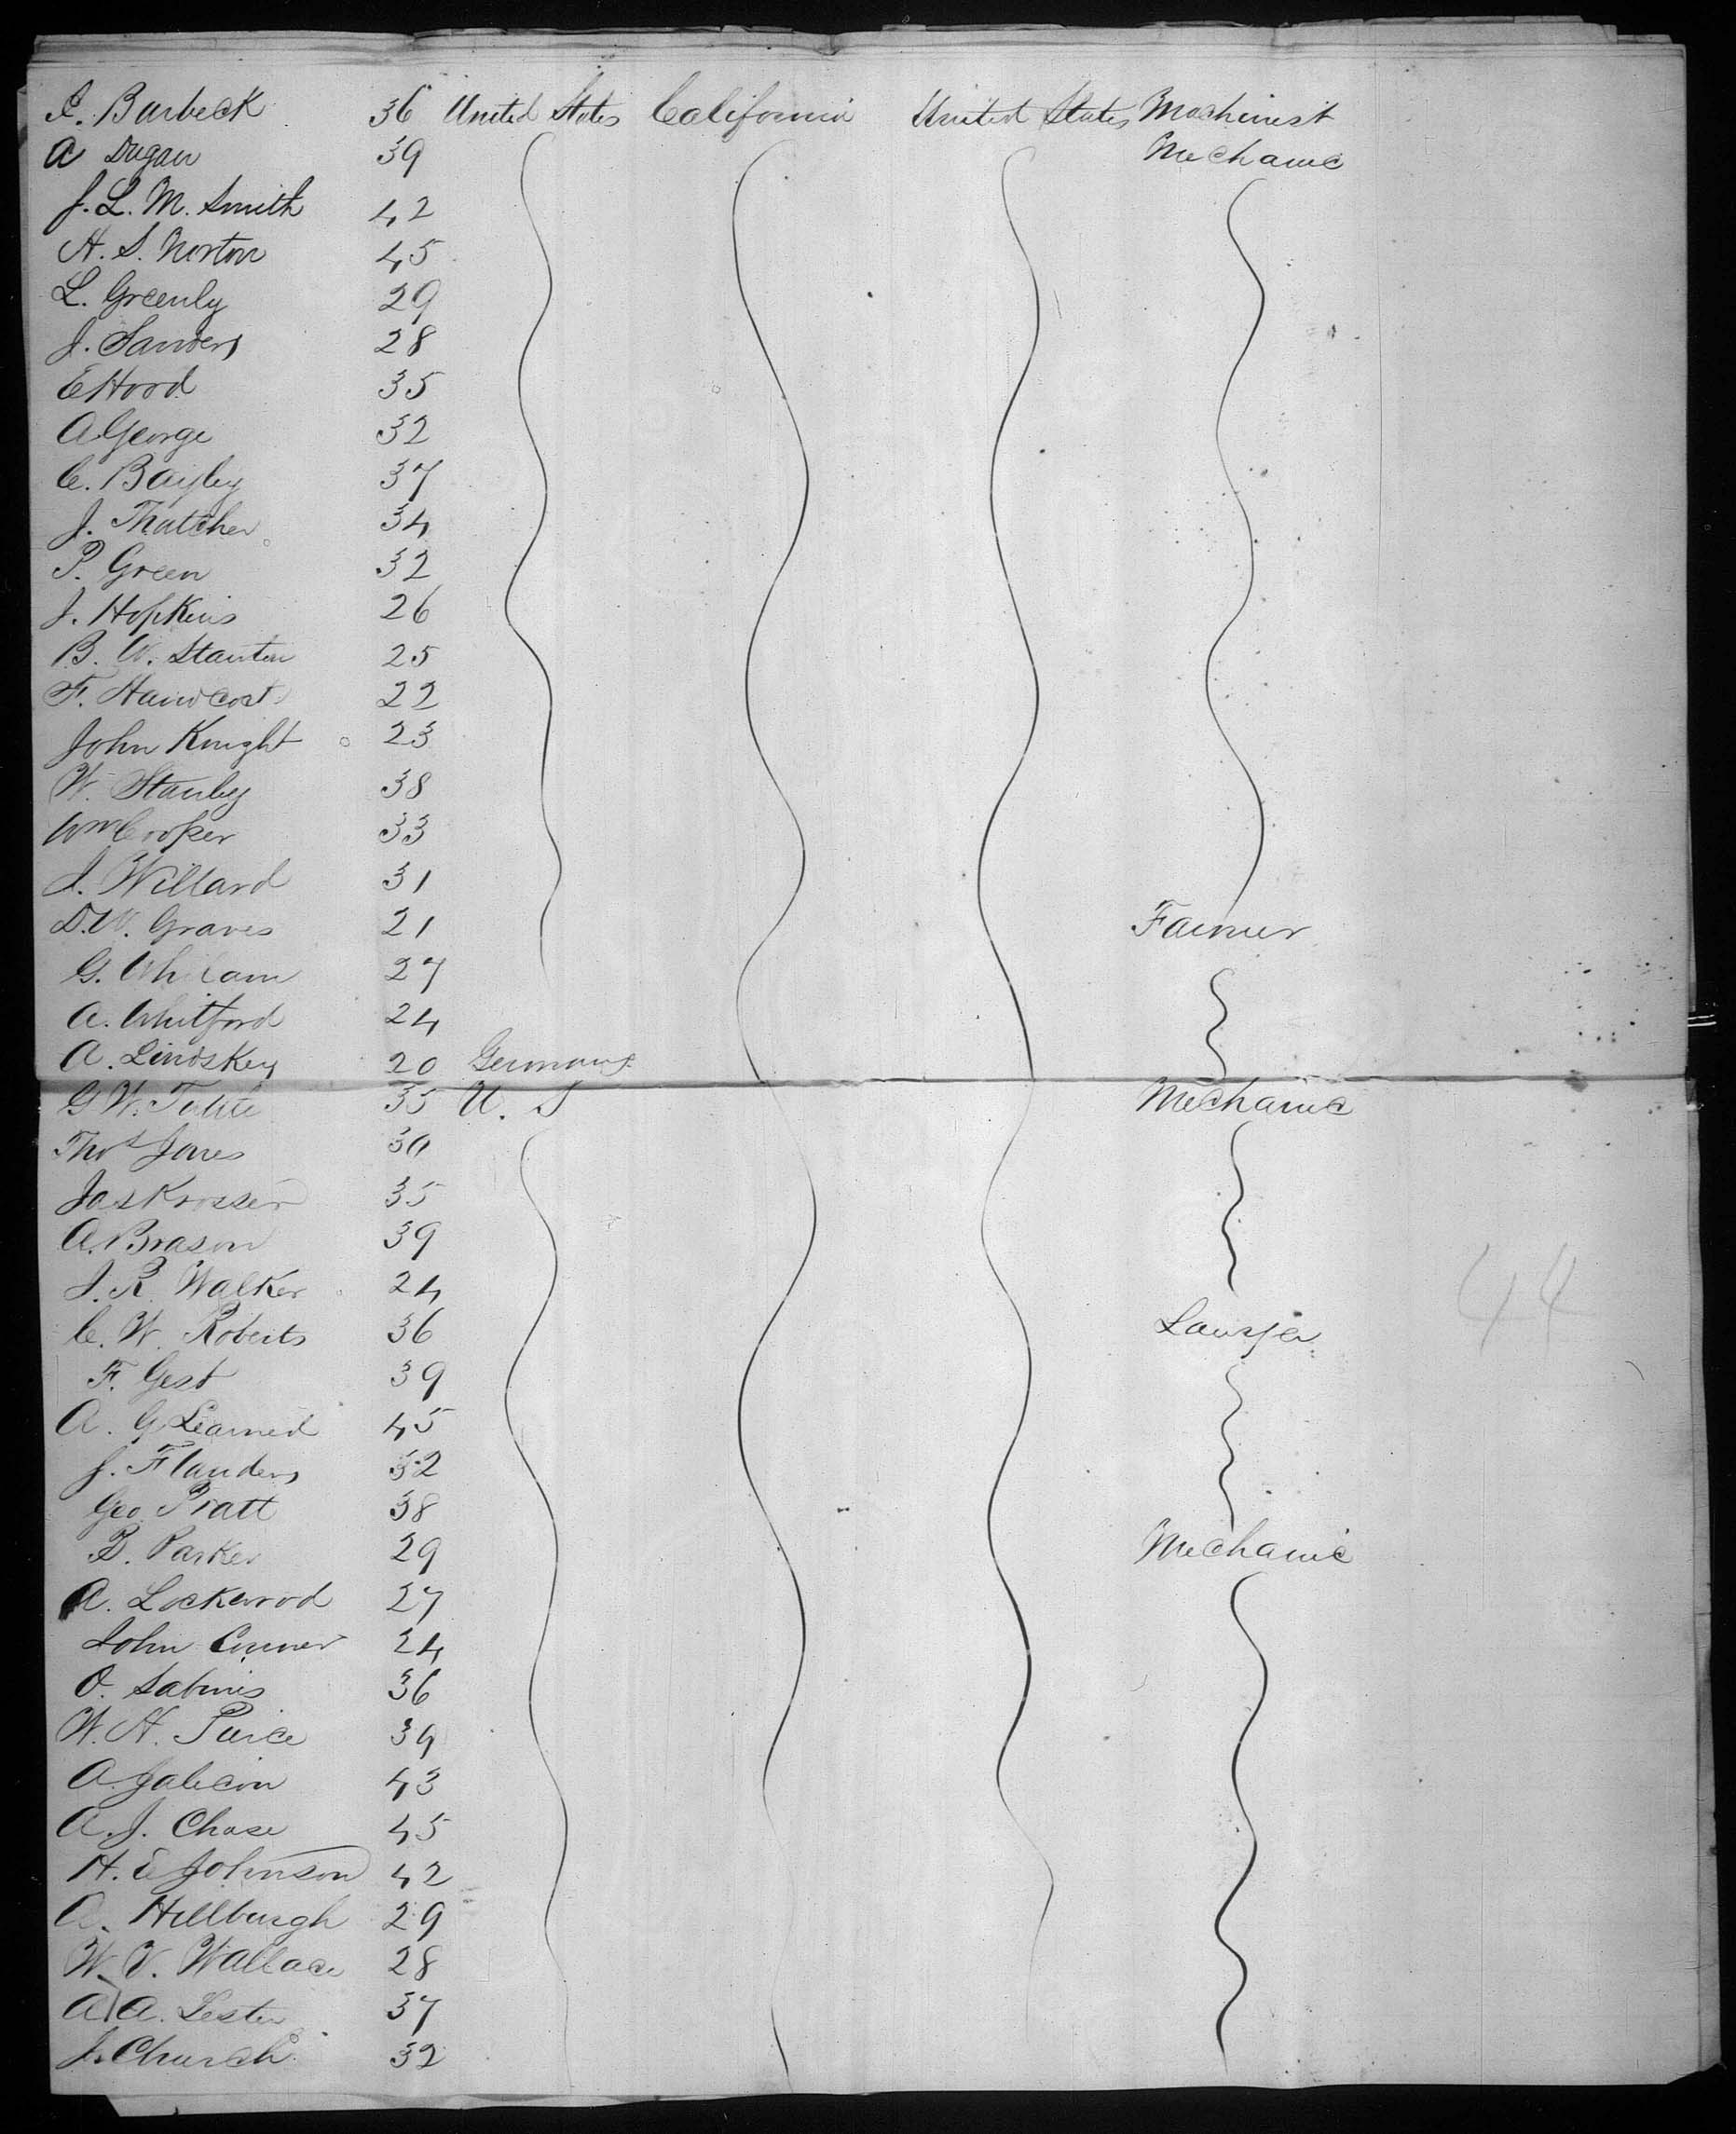 I. Burbeck 36 United States California United States Machinist
A Dugan 39 Mechanic
J. L. M. Smith 42
H. S. Norton 45
L. Greenly 29
J. Sanders 28
E Hood 35
A George 32
C. Bagley 37
J. Thatcher 34
P. Green 32
J. Hopkins 26
B. W. Stanton 25
F. Hancost 22
John Knight 23
W. Stanley 38
Wm Cooper 33
J. Willard 31
D. W. Graves 21 Farmer
G. 27
A. Whitford 24
A. Lindskey 20 Germany
G W. Tuttle 35 U. S Mechanic
Thos Jones 30
Jas Krosser 35
A. Brason 39
J. R. Walker 24
C. W. Roberts 36 Lawyer
F. Gest 39
44
A. G Learned 45
J. Flanders 32
Geo. Pratt 38
B. Parker 29 Mechanic
A. Lockwood 27
John Conner 24
O. Sabines 36
W. H. Peirce 39
A. 43
A. J. Chase 45
H. E Johnson 42
A. Hillburgh 29
W. V. Wallace 28
A. A. Lester 37
J. Church 32